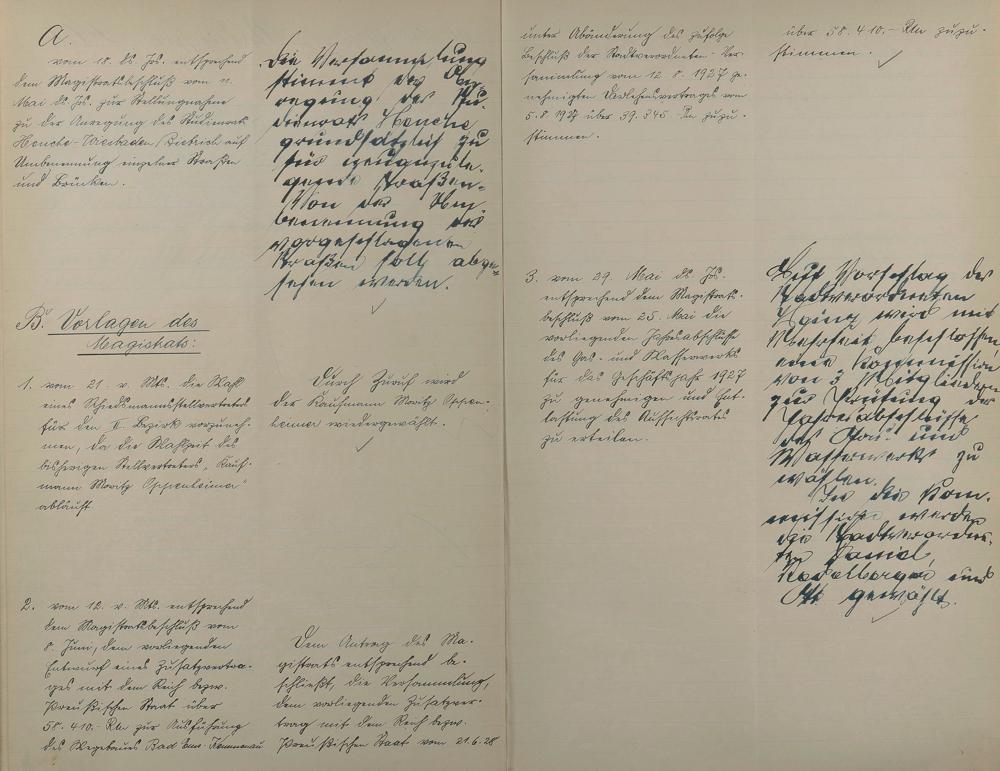 A.
vom 18. ds. Js. entsprechend
dem Magistratsbeschluß vom 11.
Mai ds. Js. zur Stellungnahme
zu der Anregung des Studienrat
Henche-Wiesbaden/Biebrich auf
Umbenennung einzelner Straßen
und Brücken.
Die Versammlung
stimmt der An-
regung des Stu-
dienrats Henche
grundsätzlich zu
für neuanzule-
gende Straßen.
Von der Um-
benennung der
vorgeschlagenen
Straßen soll abge-
sehen werden.
B. Vorlagen des
Magistrats:
1. vom 21. v. Mts. die Wahl
eines Schiedsmannsstellvertreters
für den II. Bezirk vorzuneh-
men, da die Wahlzeit des
bisherigen Stellvertreters, Kauf-
mann Moritz Oppenheimer
abläuft
Durch Zuruf wird
der Kaufmann Moritz Oppen-
heimer wiedergewählt.
2. vom 12. v. Mts. entsprechend
dem Magistratsbeschluß vom
8. Juni, dem vorliegenden
Entwurf eines Zusatzvertra-
ges mit dem Reich bezw.
Preußischen Staat über
58.410.- RM zur Ausführung
des Wegebaues Bad Ems-Kemmenau
Dem Antrag des Ma-
gistrats entsprechend be-
schließt, die Versammlung,
dem vorliegenden Zusatzver-
trag mit dem Reich bezw.
Preußischen Staat vom 21.6.28
unter Abänderung des zufolge
Beschluß der Stadtverordneten-Ver-
sammlung vom 12.8.1927 ge-
nehmigten Darlehensvertrages vom
5.8.1927 über 39.845 RM zuzu-
stimmen.
über 58.410.- RM zuzu-
stimmen.
3. vom 29. Mai ds. Js.
entsprechend dem Magistrats-
beschluß vom 25. Mai die
vorliegenden Jahresabschlüsse
des Gas- und Wasserwerks
für das Geschäftsjahr 1927
zu genehmigen und Ent-
lastung des Aufsichtsrates
zu erteilen.
Auf Vorschlag des
Stadtverordneten
wird mit
Mehrheit beschlossen
eine Kommission
von 3 Mitgliedern
zur Prüfung der
Jahresabschlüsse
des Gas- und
Wasserwerks zu
wählen.
In die Kom-
mission werden
die Stadtverordne-
ten Daniel,
und
Ott gewählt.